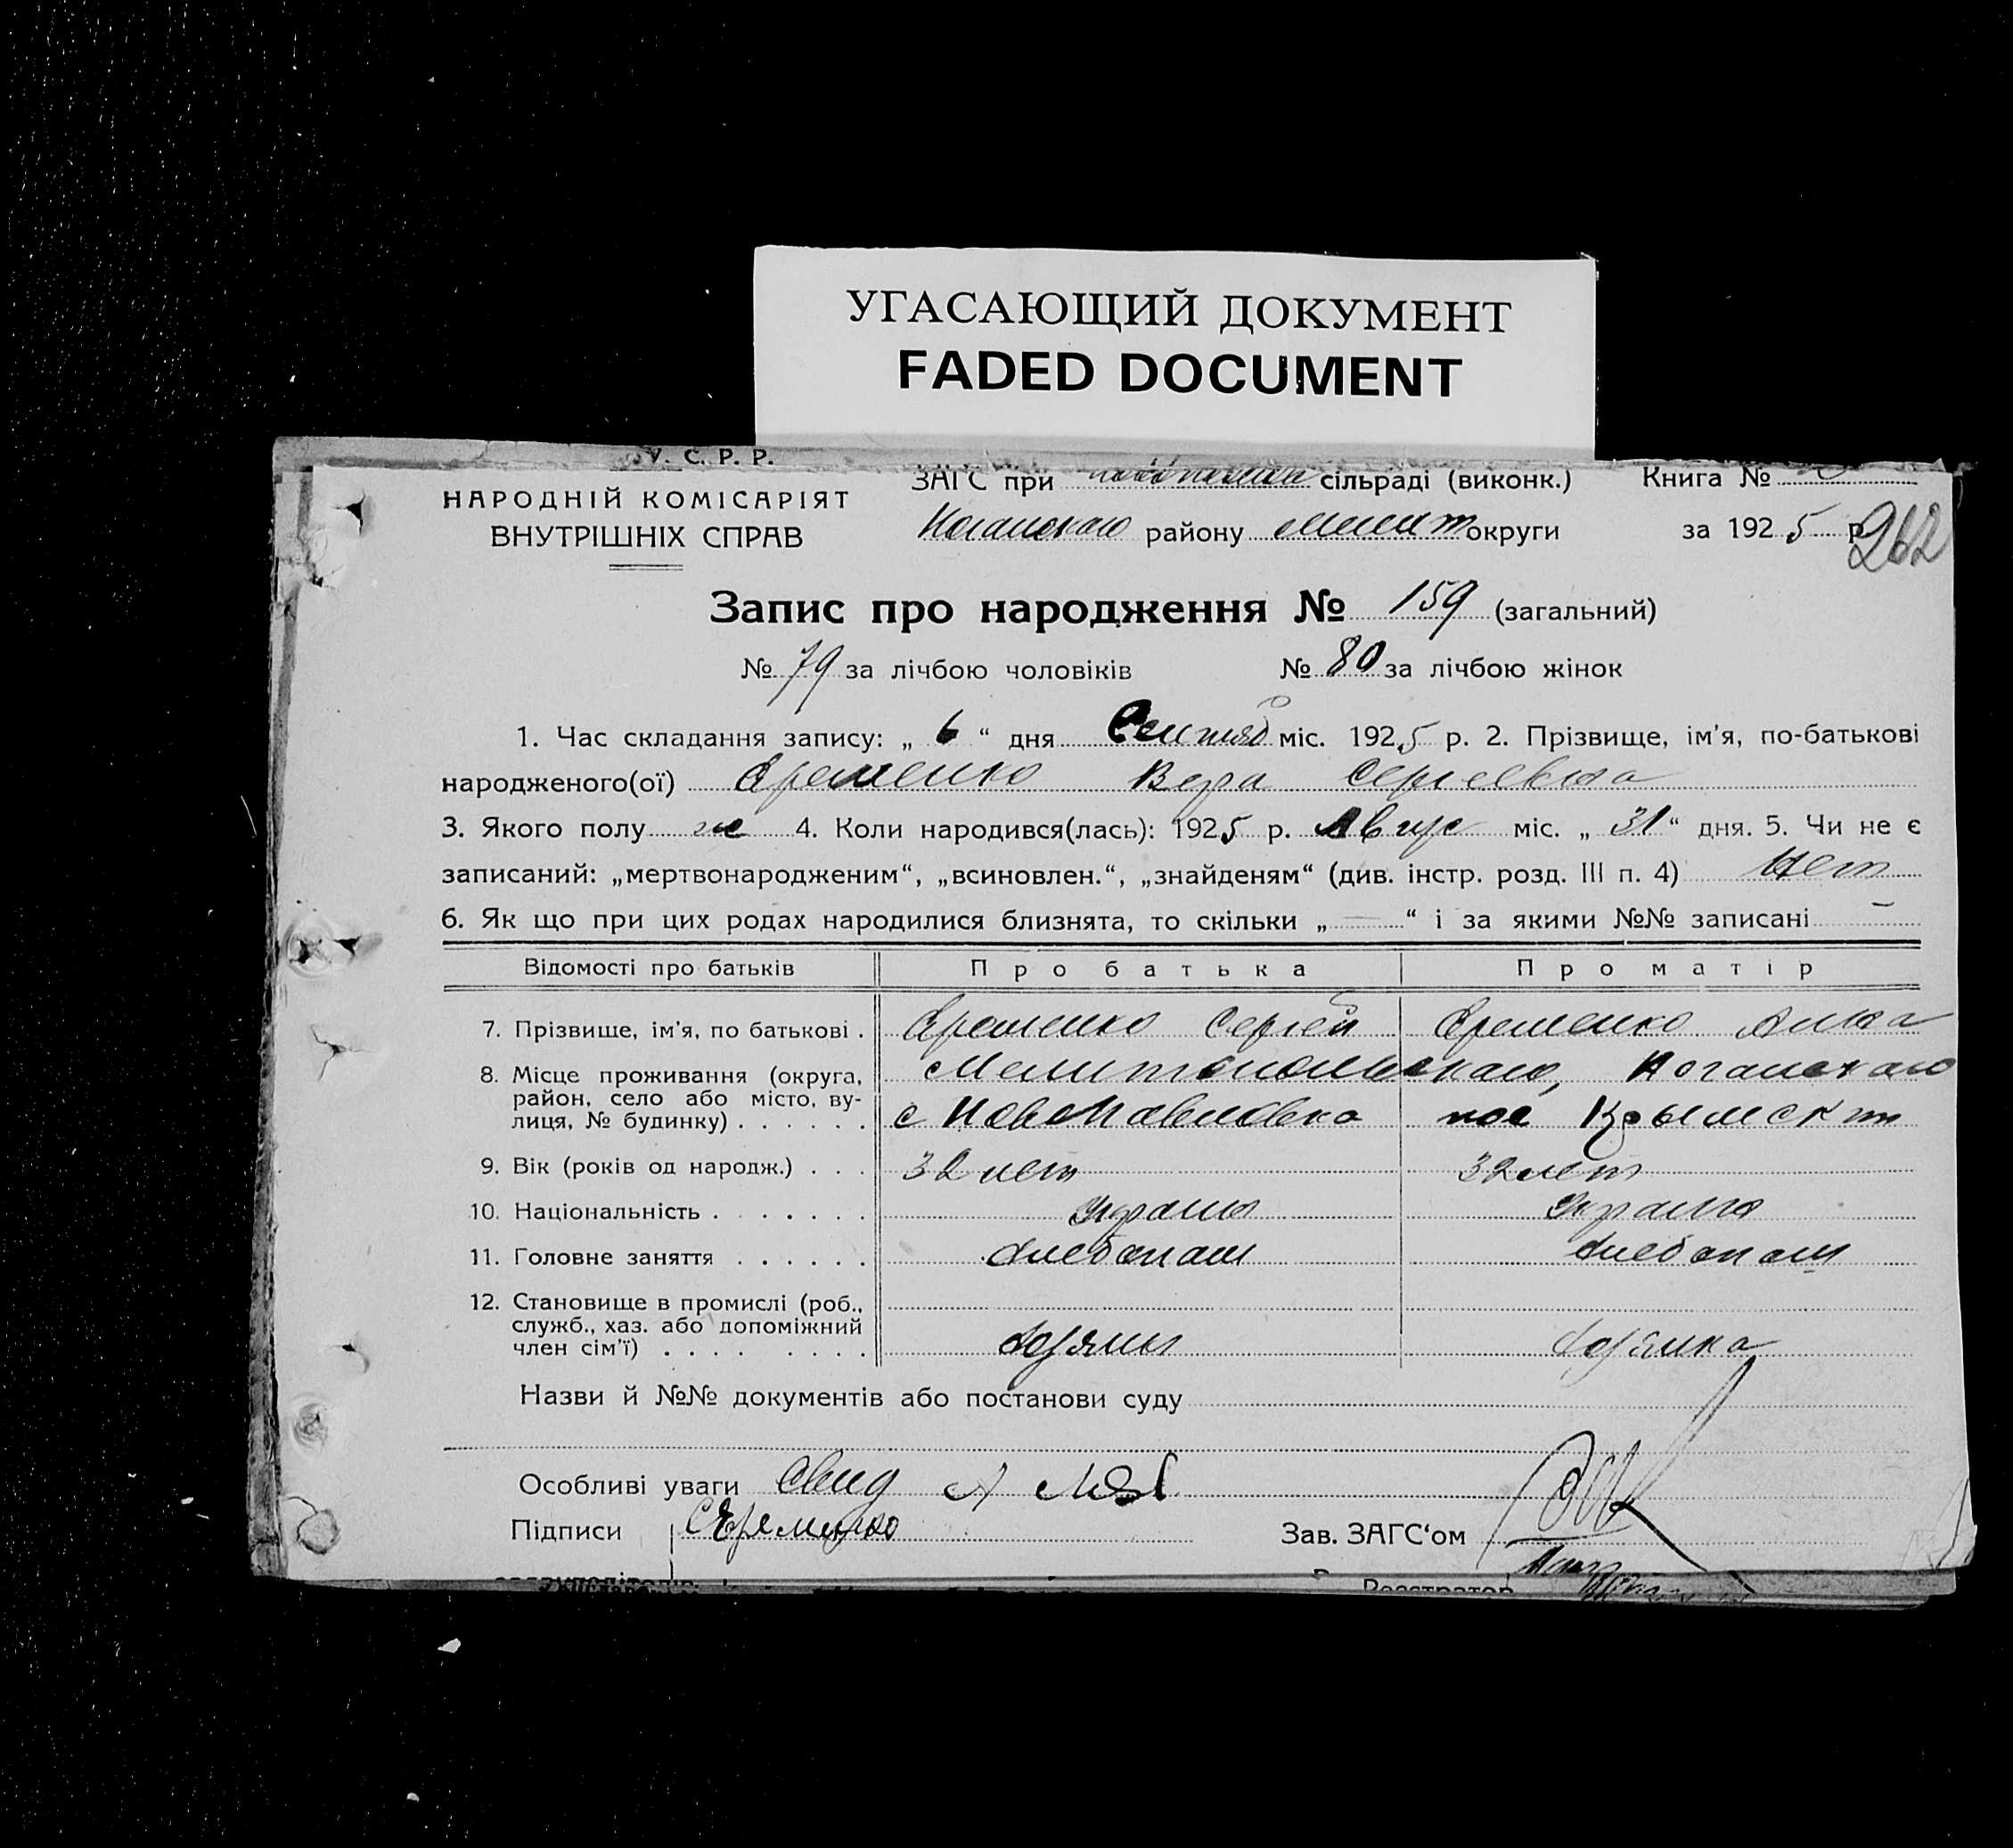 УГАСАЮЩИЙ ДОКУМЕНТ
FADED DOCUMENT
У. С. Р. Р.
НАРОДНІЙ КОМІСАРІЯТ
ВНУТРІШНІХ СПРАВ
ЗАГС при сільраді (виконк.) Книга №
Ногайского району Мелит округи за 1925 р.
262
Запис про народження № 159 (загальний)
№ 79 за лічбою чоловіків № 80 за лічбою жінок
1. Час складання запису: „ 6 “ дня Сентяб міс. 1925 р. 2. Прізвище, ім'я, по-батькові
народженого(ої) Еременко Вера Сергеевна
3. Якого полу же 4. Коли народився(лась): 1925 р. Авгус міс. „ 31 “ дня. 5. Чи не є
записаний: „мертвонародженим“, „всиновлен.“, „знайденям“ (див. інстр. розд. III п. 4) Нет
6. Як що при цих родах народилися близнята, то скільки „ — “ і за якими №№ записані —
Відомості про батьків Про батька Про матір
7. Прізвище, ім'я, по батькові . Еременко Сергей Еременко Анна
8. Місце проживання (округа, Мелитопольскаго, Ногайскаго
район, село або місто, ву-
лиця, № будинку) . . . . . . с Новопавловка пос Крымскт
9. Вік (років од народж.) . . . 32 лет 32 лет
10. Національність . . . . . . . Украин Украин
11. Головне заняття . . . . . . Хлебопаш Хлебопаш
12. Становище в промислі (роб.,
служб., хаз. або допоміжний
член сім'ї) . . . . . . . . Хозяин Хозяйка
Назви й №№ документів або постанови суду
Особливі уваги Свид
Підписи СЕременко Зав. ЗАГС'ом
Реєстратор